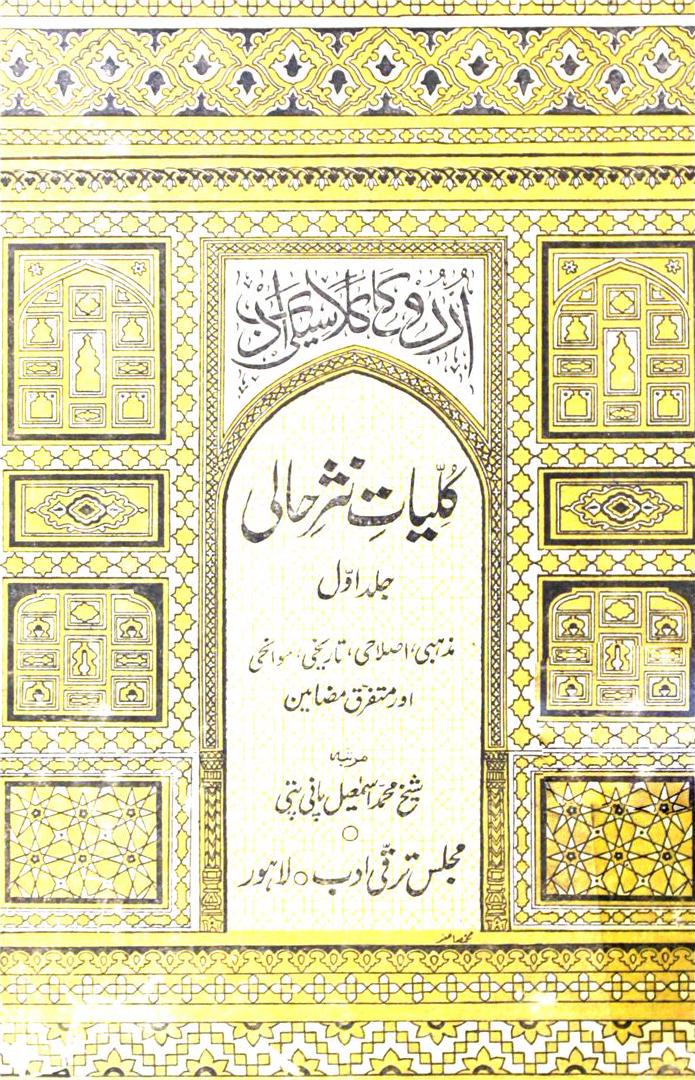 اُردو کا کلاسیکی ادب
کُلّیاتِ نثرِ حالی
جلد اوّل
مذہبی، اصلاحی، تاریخی، سوانحی
اور متفرق مضامین
مرتبہ
شیخ محمد اسمٰعیل پانی پتی
مجلس ترقّی ادب ○ لاہور